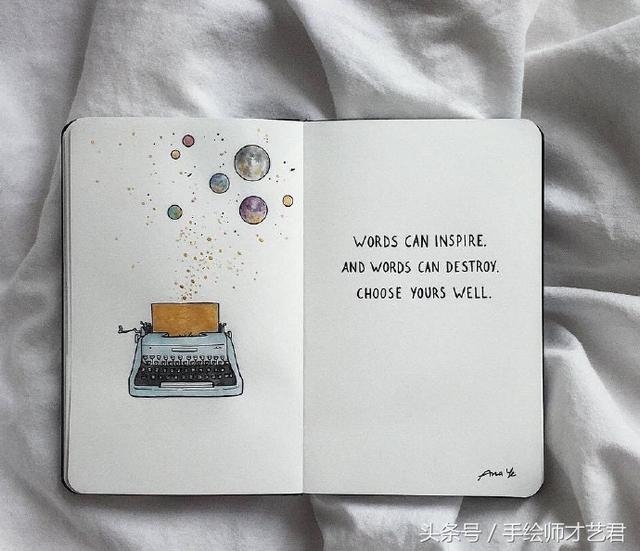 WORDS CAN INSPIRE.
AND WORDS CAN DESTROY.
CHOOSE YOURS WELL.
Ana Yc
头条号 / 手绘师才艺君